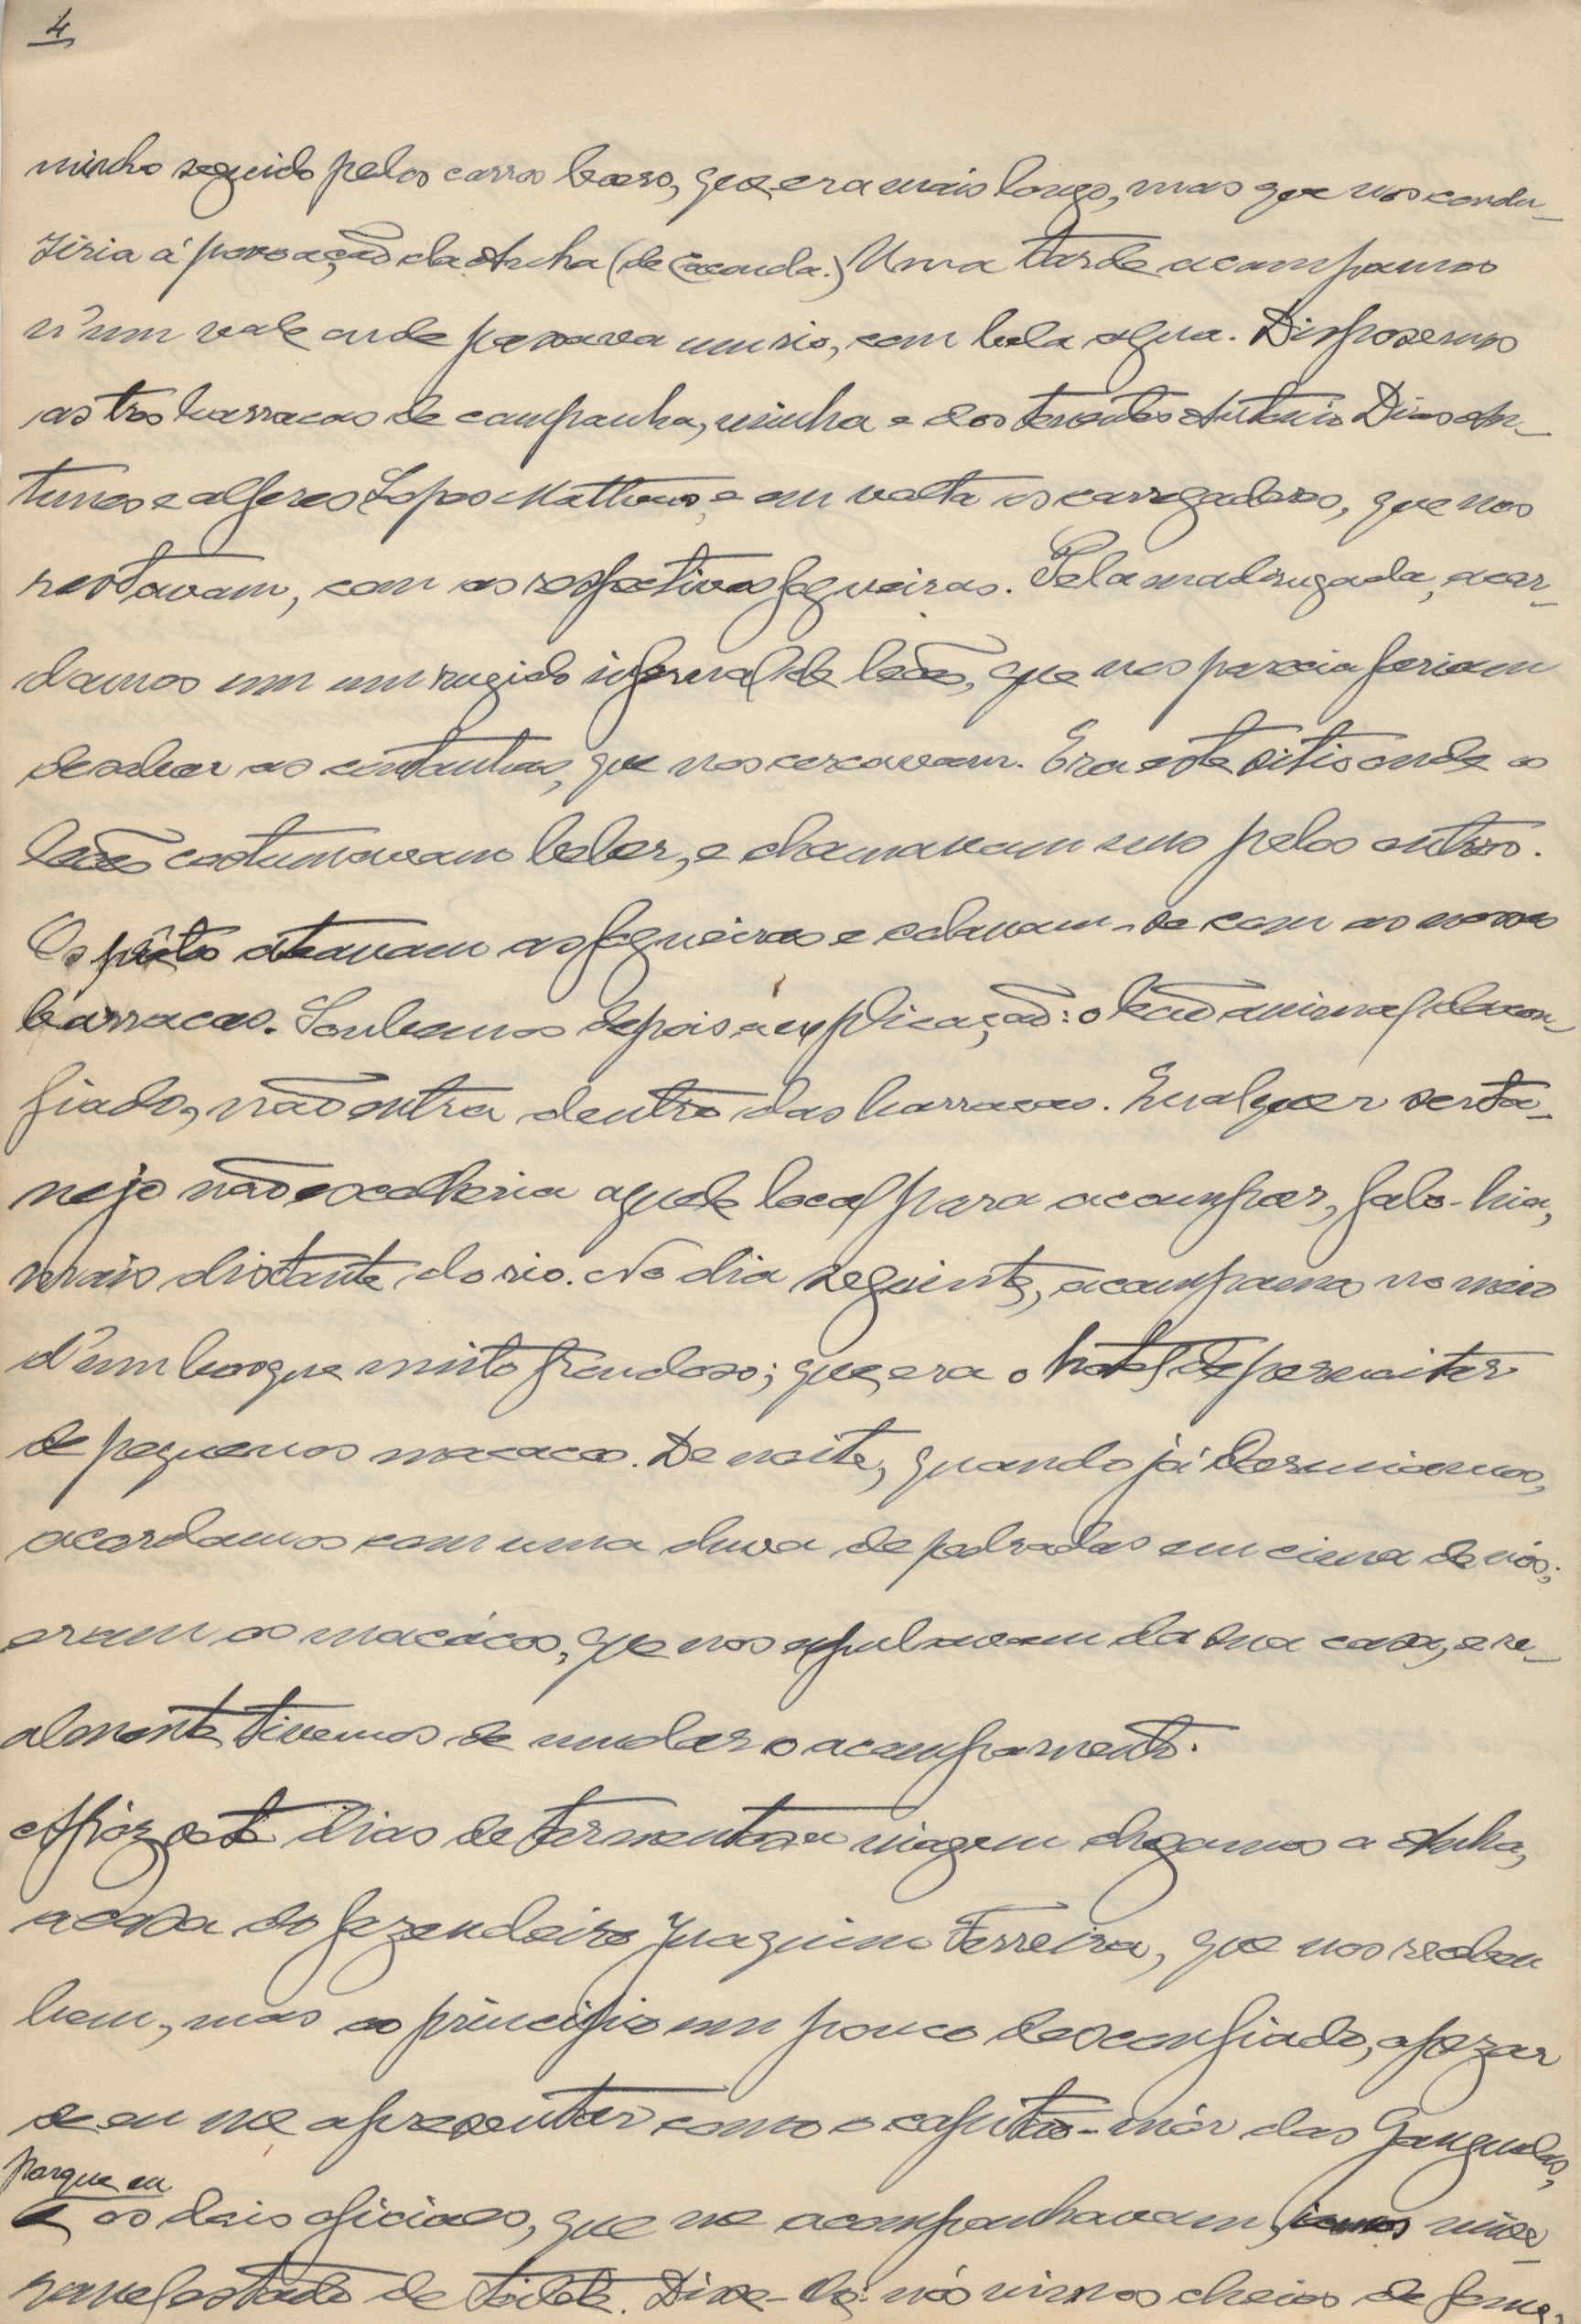 4
minho seguido pelos carros boers, que era mais longo, mas que nos condu-
ziria á povoação da Anha (de Caconda.) Uma tarde acampamos
n'um vale onde passava um rio, com bela agua. Disposemos
as tres barracas de campanha, minha e dos tenentes Antonio Dias An-
tunes e alferes Lopes Matheus, e em volta os carregadores, que nos
restavam, com as respectivas fogueiras. Pela madrugada, acor-
damos em um rugido infernal de leões, que nos parecia fariam
desabar as montanhas, que nos cercavam. Era este sitio onde os
leões costumavam beber, e chamavam uns pelos outros.
Os prêtos ateavam as fogueiras e colavam-se com as nossas
barracas. Soubemos depois a explicação: o leão animal descon-
fiado, não entra dentro das barracas. Qualquer serta-
nejo não escolheria aquele local para acampar, falo-hia,
mais distante do rio. No dia seguinte, acampamos no meio
d'um bosque muito frondoso; que era o hotel de pernoitar
de pequenos macacos. De noite, quando já dormiamos,
acordamos com uma chuva de pedradas em cima de nós;
eram os macácos, que nos expulsavam da sua casa, e re-
almente tivemos de mudar o acampamento.
Apóz sete dias de tormentosa viagem chegamos a Anha,
a casa do fazendeiro Juaquim Ferreira, que nos recebeu
bem, mas ao principio um pouco desconfiado, apezar
de eu me apresentar como o capitão-mór das Ganguelas,
porque eu
e os dois oficiaes, que me acompanhavam, iamos mise-
ravel estado de toilete. Disse-lhe: nós vimos cheios de fome,